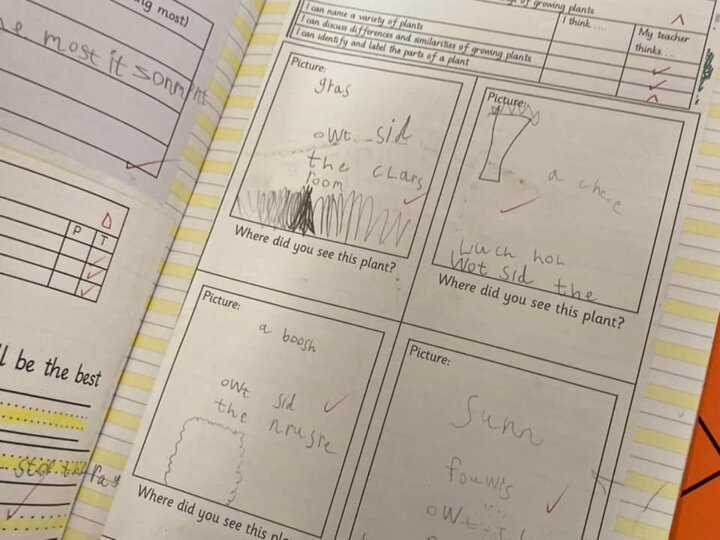 ng most)
most it sonment
P T
ll be the best
of growing plants
I can name a variety of plants
I can discuss differences and similarities of growing plants
I can identify and label the parts of a plant
I think ....
My teacher
thinks ....
Picture:
gras
owt sid
the clars
room
Where did you see this plant?
Picture:
a chee
Luwch hol
Wot sid the
Where did you see this plant?
Picture:
a boosh
owt sid
the nrusre
Where did you see this pla
Picture:
Sunn
fouwis
owt